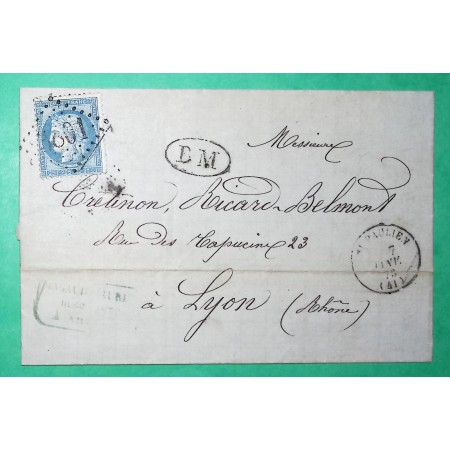 801
DM
Messieurs
Cretinon, Ricard-Belmont
Rue des Capucins 23
à Lyon (Rhône)
7
JANV
75
(41)